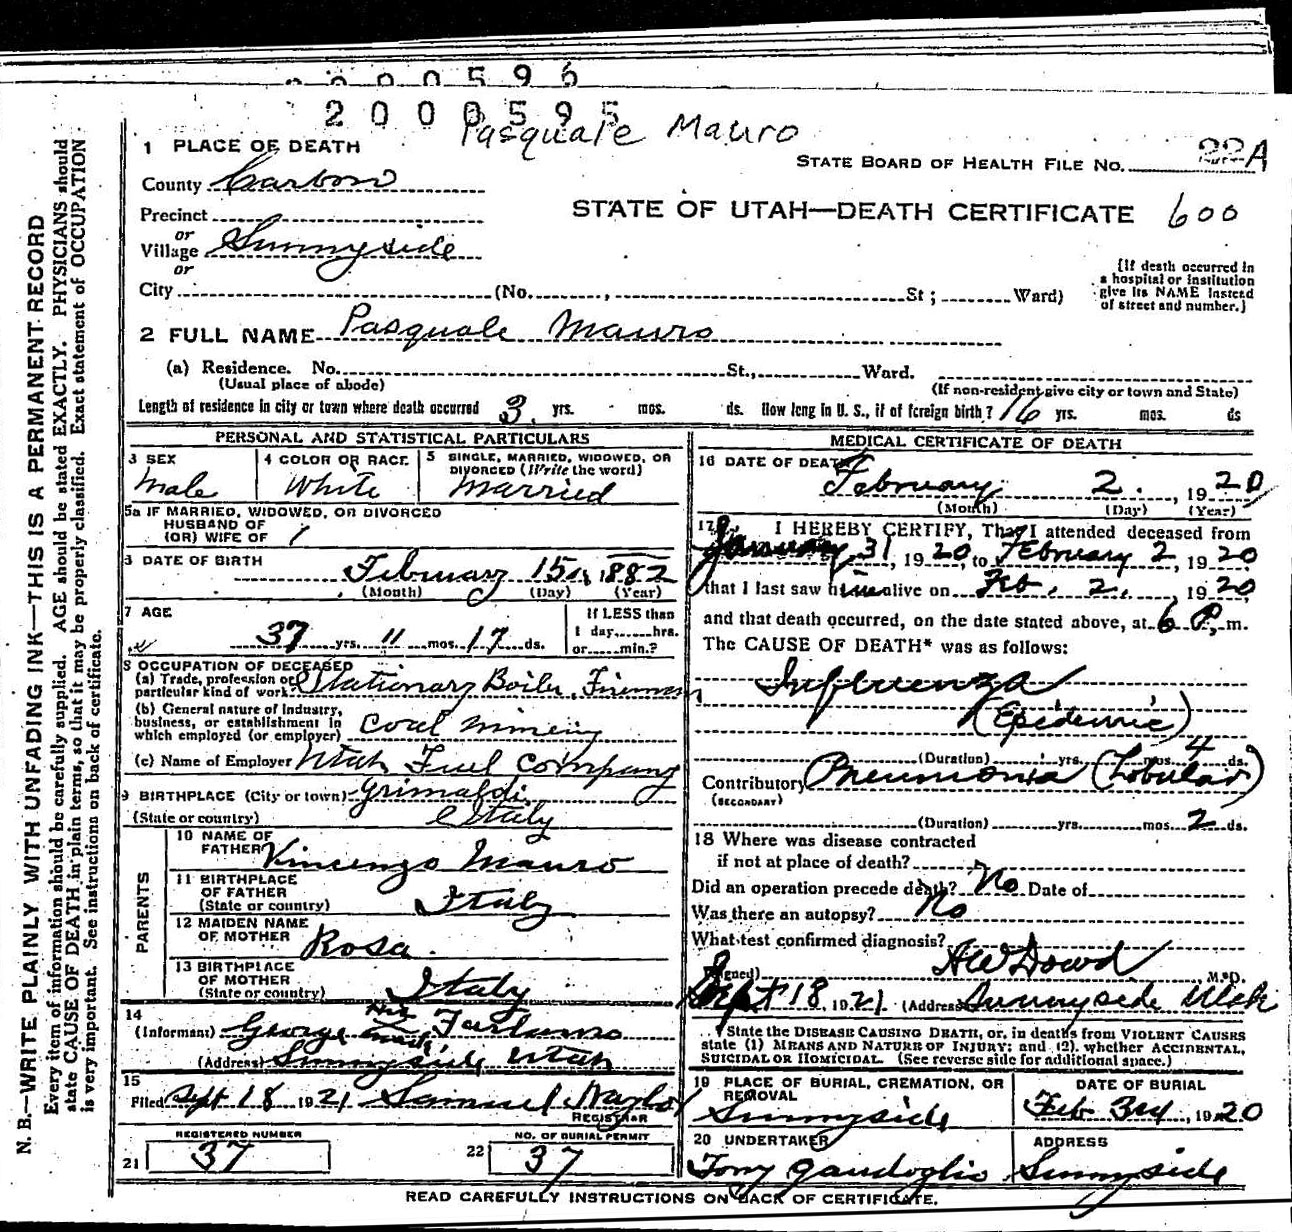 2000596
2000595
Pasquale Mauro
1 PLACE OF DEATH
STATE BOARD OF HEALTH FILE No. 22A
County Carbon
STATE OF UTAH—DEATH CERTIFICATE 600
Precinct
or
Village Sunnyside
or
City (No. , St; Ward)
{If death occurred in
a hospital or institution
give its NAME instead
of street and number.}
2 FULL NAME Pasquale Mauro
(a) Residence. No. St., Ward.
(Usual place of abode)
(If non-resident give city or town and State)
Length of residence in city or town where death occurred 3 yrs. mos. ds. How long in U. S., if of foreign birth? 16 yrs. mos. ds
PERSONAL AND STATISTICAL PARTICULARS
3 SEX
Male
4 COLOR OR RACE
White
5 SINGLE, MARRIED, WIDOWED, OR
DIVORCED (Write the word)
Married
5a IF MARRIED, WIDOWED, OR DIVORCED
HUSBAND OF
(OR) WIFE OF
6 DATE OF BIRTH
February 15, 1882
(Month) (Day) (Year)
7 AGE
37 yrs. 11 mos. 17 ds.
If LESS than
1 day......hrs.
or......min.?
8 OCCUPATION OF DECEASED
(a) Trade, profession or
particular kind of work. Stationary Boiler Fireman
(b) General nature of industry,
business, or establishment in
which employed (or employer) Coal mining
(c) Name of Employer Utah Fuel Company
9 BIRTHPLACE (City or town) Grimaldi
(State or country) Italy
PARENTS
10 NAME OF
FATHER Vincenzo Mauro
11 BIRTHPLACE
OF FATHER
(State or country) Italy
12 MAIDEN NAME
OF MOTHER Rosa
13 BIRTHPLACE
OF MOTHER
(State or country) Italy
14
(Informant) George
(Address) Sunnyside Utah
15
Filed Sept 18 1921 Samuel Naylor
REGISTRAR
REGISTERED NUMBER
21 37
NO. OF BURIAL PERMIT
22 37
MEDICAL CERTIFICATE OF DEATH
16 DATE OF DEATH
February 2, 1920
(Month) (Day) (Year)
17 I HEREBY CERTIFY, That I attended deceased from
January 31, 1920, to February 2, 1920
that I last saw him alive on Feb. 2, 1920
and that death occurred, on the date stated above, at 6 P. m.
The CAUSE OF DEATH* was as follows:
Influenza
(Epidemic)
(Duration) yrs. mos. 4 ds.
Contributory Pneumonia (Lobular)
(SECONDARY)
(Duration) yrs. mos. 2 ds.
18 Where was disease contracted
if not at place of death?
Did an operation precede death? No Date of
Was there an autopsy? No
What test confirmed diagnosis?
(Signed) A W Dowd M. D.
Sept 18, 1921 (Address) Sunnyside Utah
*State the DISEASE CAUSING DEATH, or, in deaths from VIOLENT CAUSES
state (1) MEANS AND NATURE OF INJURY; and (2), whether ACCIDENTAL,
SUICIDAL OR HOMICIDAL. (See reverse side for additional space.)
19 PLACE OF BURIAL, CREMATION, OR
REMOVAL
Sunnyside
DATE OF BURIAL
Feb 3rd, 1920
20 UNDERTAKER
Tony Gaudoglio
ADDRESS
Sunnyside
READ CAREFULLY INSTRUCTIONS ON BACK OF CERTIFICATE.
N. B.—WRITE PLAINLY WITH UNFADING INK—THIS IS A PERMANENT RECORD
Every item of information should be carefully supplied. AGE should be stated EXACTLY. PHYSICIANS should
state CAUSE OF DEATH in plain terms, so that it may be properly classified. Exact statement of OCCUPATION
is very important. See instructions on back of certificate.